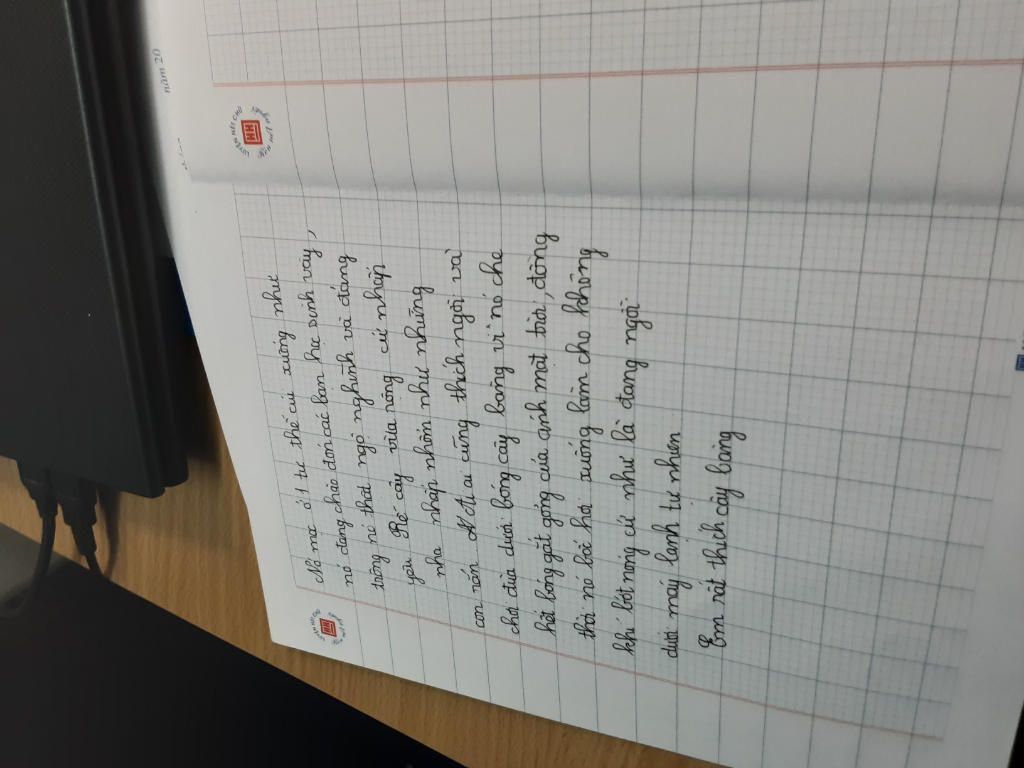 Nó mọc ở 1 tư thế cúi xuống như
nó đang chào đón các bạn học sinh vậy,
trông nó thật ngộ nghĩnh và đáng
yêu Rễ cây vừa nông cứ nhấp
nha nhấp nhôm như những
con rắn Ai ai cũng thích ngồi và
chơi đùa dưới bóng cây bàng vì nó che
hết bóng gắt gỏng của anh mặt trời, đồng
thời nó bốc hơi xuống làm cho không
khí bớt nóng cứ như là đang ngồi
dưới máy lạnh tự nhiên
Em rất thích cây bàng
năm 20
HH
HH